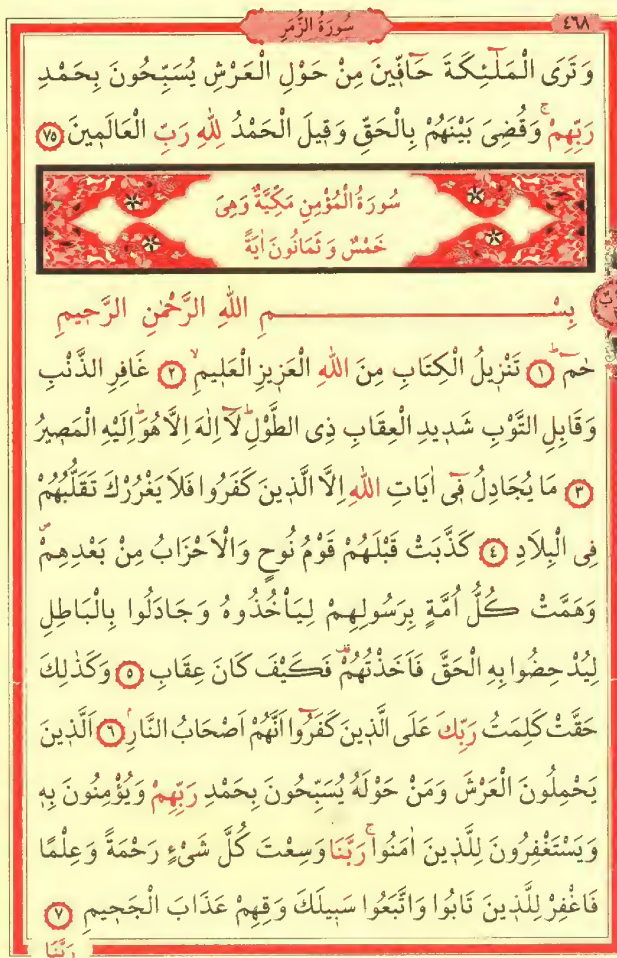 ٤٦٨
سُورَةُ الزُّمَرِ
وَتَرَى الْمَلٰٓئِكَةَ حَٓافّ۪ينَ مِنْ حَوْلِ الْعَرْشِ يُسَبِّحُونَ بِحَمْدِ
رَبِّهِمْۚ وَقُضِىَ بَيْنَهُمْ بِالْحَقِّ وَق۪يلَ الْحَمْدُ لِلّٰهِ رَبِّ الْعَالَم۪ينَ ٧٥
سُورَةُ الْمُؤْمِنِ مَكِّيَّةٌ وَهِىَ
خَمْسٌ وَ ثَمَانُونَ اٰيَةً
بِسْــــــــــــمِ اللّٰهِ الرَّحْمٰنِ الرَّح۪يمِ
حٰمٓۜ ١ تَنْز۪يلُ الْكِتَابِ مِنَ اللّٰهِ الْعَز۪يزِ الْعَل۪يمِۙ ٢ غَافِرِ الذَّنْبِ
وَقَابِلِ التَّوْبِ شَد۪يدِ الْعِقَابِ ذِى الطَّوْلِۜ لَٓا اِلٰهَ اِلَّا هُوَۜ اِلَيْهِ الْمَص۪يرُ
٣ مَا يُجَادِلُ ف۪ٓى اٰيَاتِ اللّٰهِ اِلَّا الَّذ۪ينَ كَفَرُوا فَلَا يَغْرُرْكَ تَقَلُّبُهُمْ
فِى الْبِلَادِ ٤ كَذَّبَتْ قَبْلَهُمْ قَوْمُ نُوحٍ وَالْاَحْزَابُ مِنْ بَعْدِهِمْۖ
وَهَمَّتْ كُلُّ اُمَّةٍ بِرَسُولِهِمْ لِيَأْخُذُوهُ وَجَادَلُوا بِالْبَاطِلِ
لِيُدْحِضُوا بِهِ الْحَقَّ فَاَخَذْتُهُمْ۠ فَكَيْفَ كَانَ عِقَابِ ٥ وَكَذٰلِكَ
حَقَّتْ كَلِمَتُ رَبِّكَ عَلَى الَّذ۪ينَ كَفَرُٓوا اَنَّهُمْ اَصْحَابُ النَّارِۢ ٦ اَلَّذ۪ينَ
يَحْمِلُونَ الْعَرْشَ وَمَنْ حَوْلَهُ يُسَبِّحُونَ بِحَمْدِ رَبِّهِمْ وَيُؤْمِنُونَ بِه۪
وَيَسْتَغْفِرُونَ لِلَّذ۪ينَ اٰمَنُواۚ رَبَّنَا وَسِعْتَ كُلَّ شَىْءٍ رَحْمَةً وَعِلْمًا
فَاغْفِرْ لِلَّذ۪ينَ تَابُوا وَاتَّبَعُوا سَب۪يلَكَ وَقِهِمْ عَذَابَ الْجَح۪يمِ ٧
رَبَّنَا